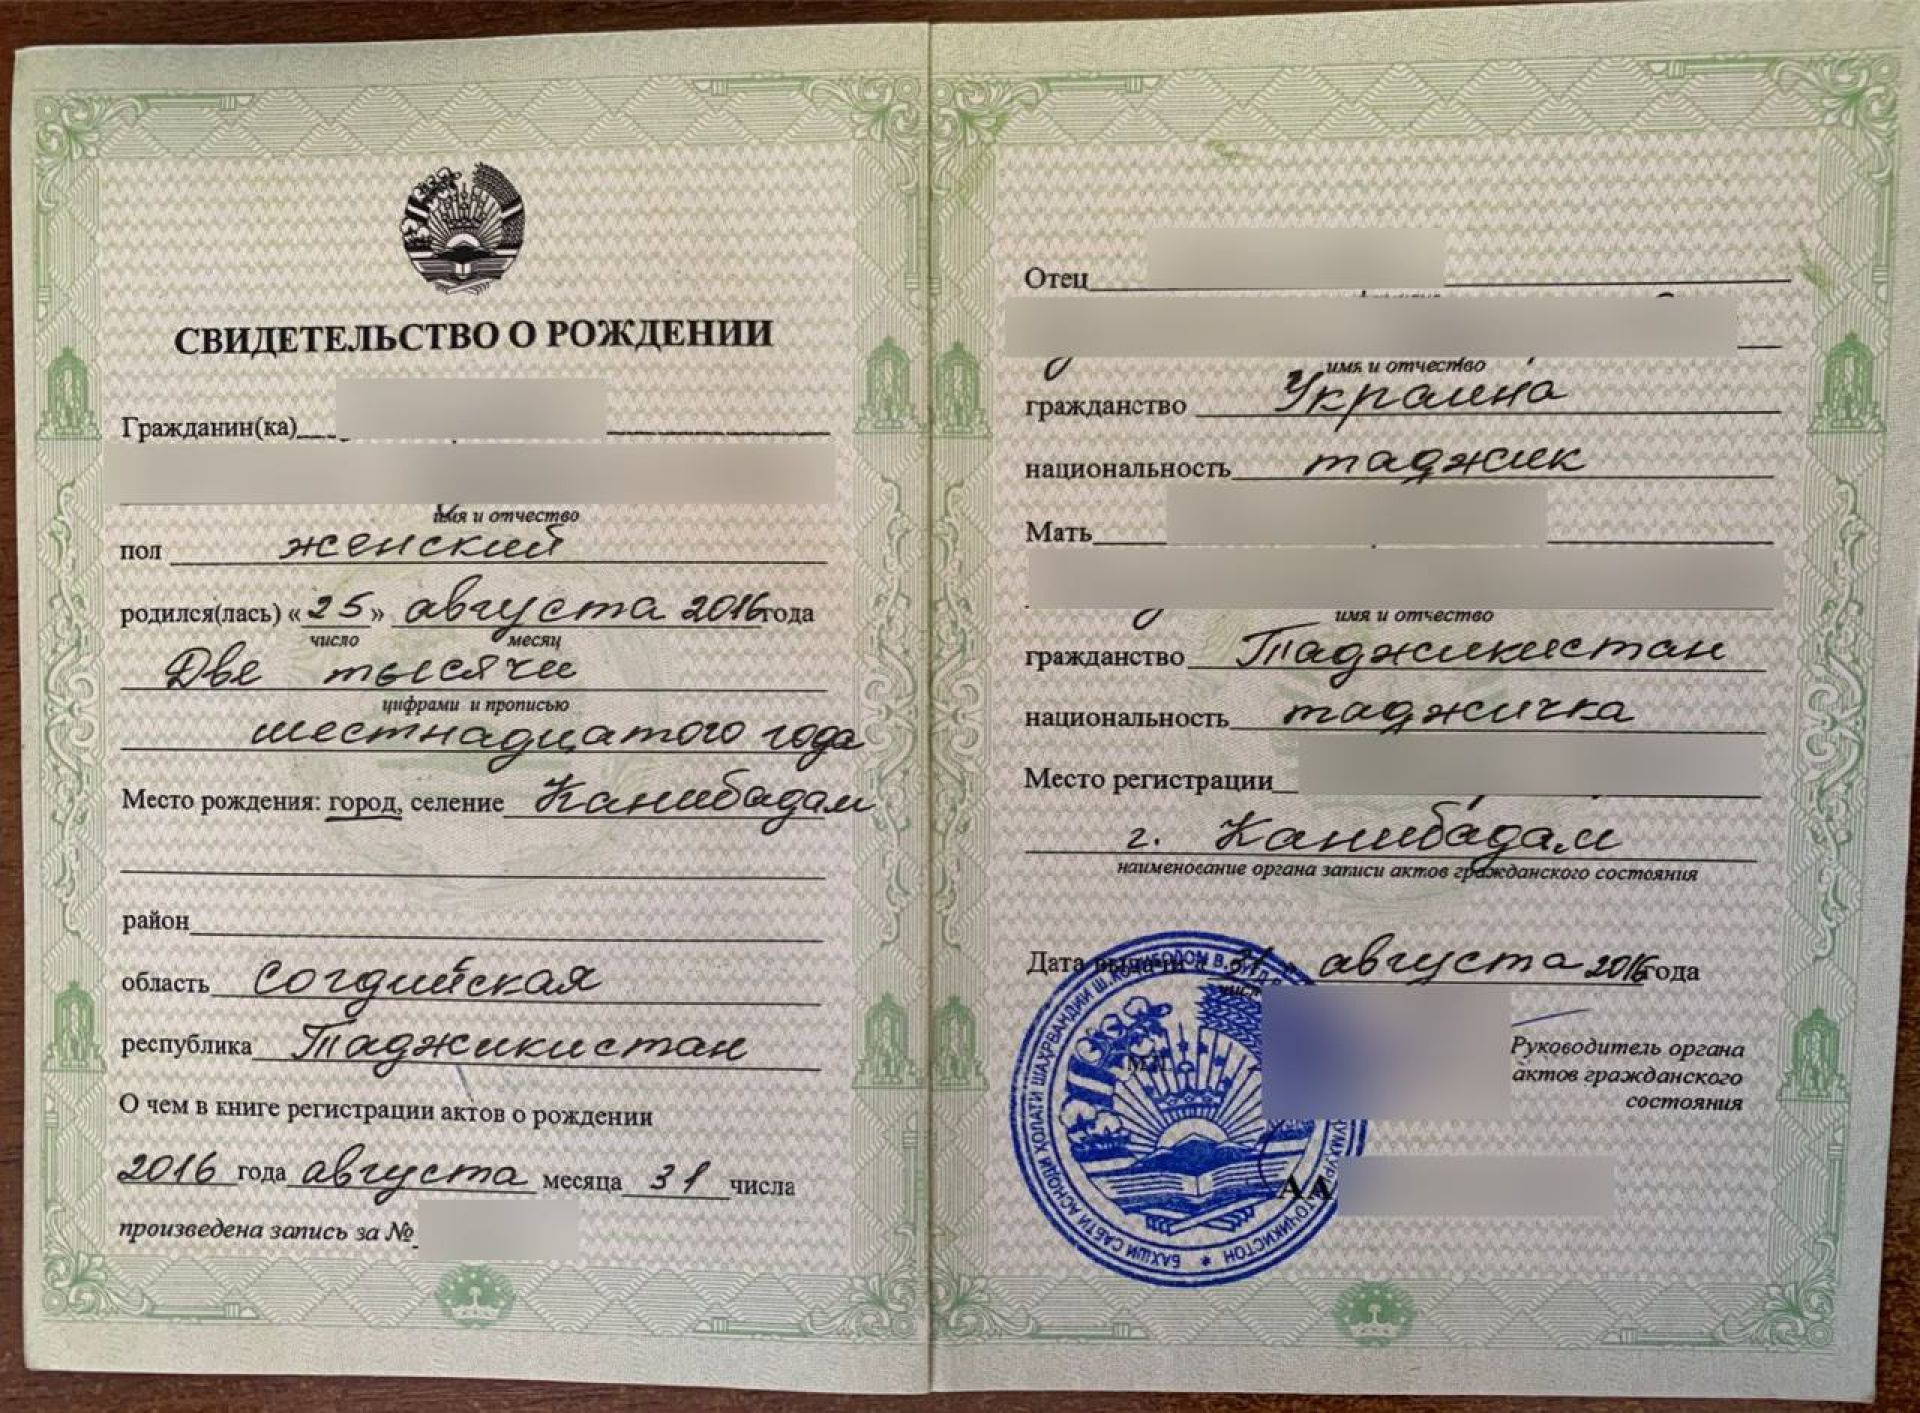 СВИДЕТЕЛЬСТВО О РОЖДЕНИИ
Гражданин(ка)
имя и отчество
пол женский
родился(лась) «25» августа 2016 года
число месяц
Две тысячи
цифрами и прописью
шестнадцатого года
Место рождения: город, селение Канибадам
район
область Согдийская
республика Таджикистан
О чем в книге регистрации актов о рождении
2016 года августа месяца 31 числа
произведена запись за №
Отец
имя и отчество
гражданство Украина
национальность таджик
Мать
имя и отчество
гражданство Таджикистан
национальность таджичка
Место регистрации
г. Канибадам
наименование органа записи актов гражданского состояния
Дата выдачи « 31 » августа 2016 года
число
М.П.
Руководитель органа
актов гражданского
состояния
БАХШИ САБТИ АСНОДИ ҲОЛАТИ ШАҲРВАНДИИ Ш. КОНИБОДОМ В.
ТОҶИКИСТОН